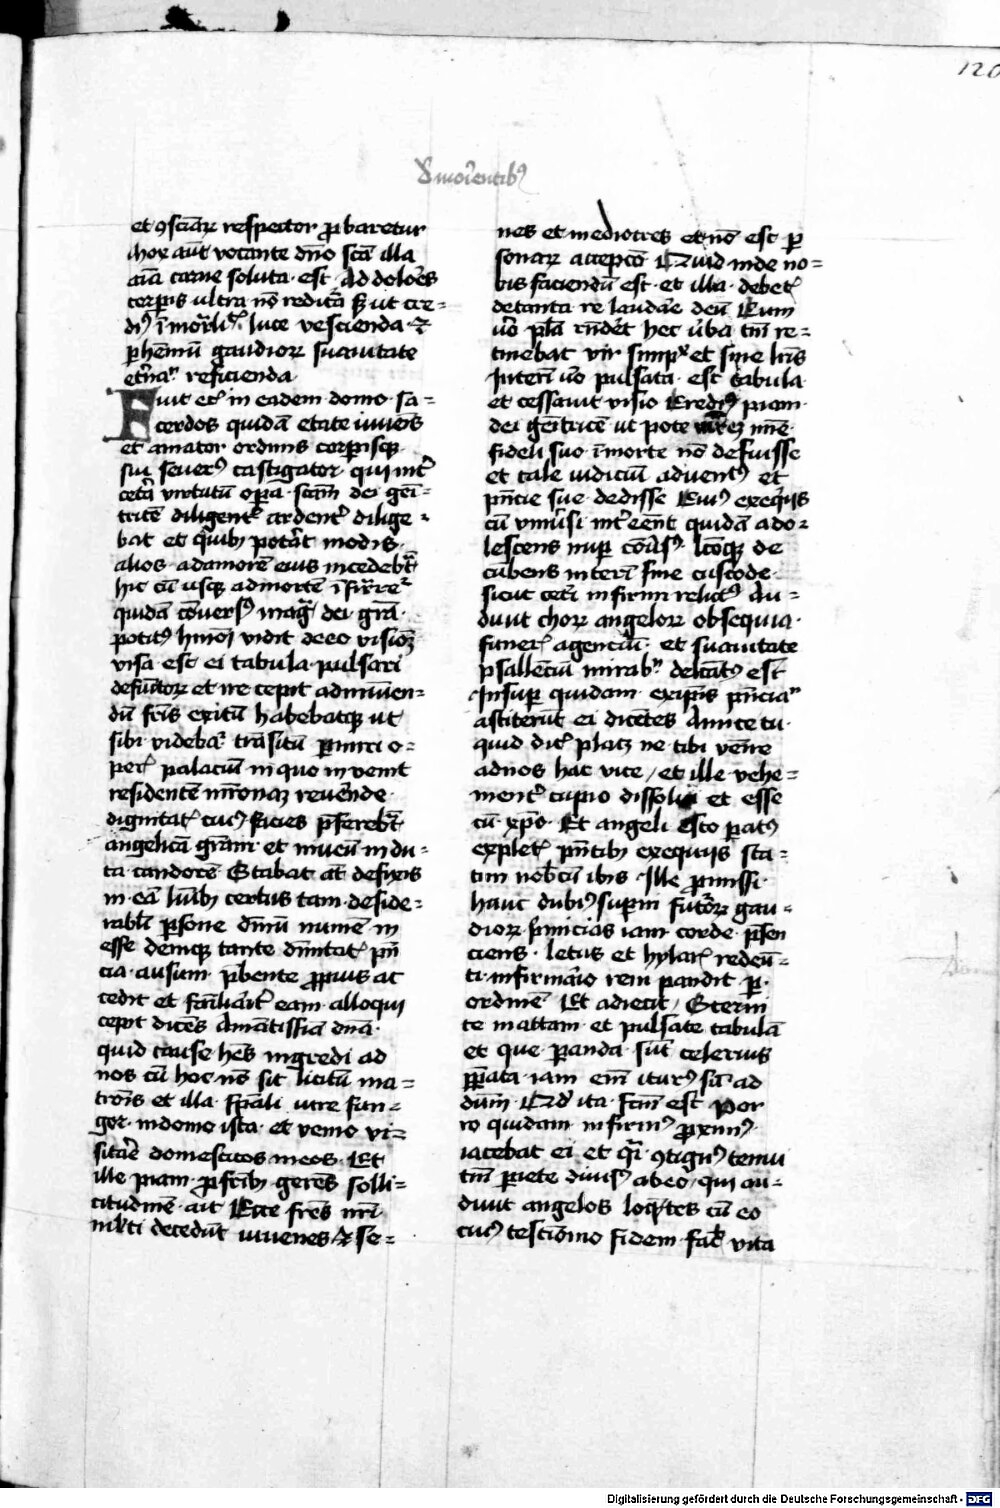 120
De morientib9
et 9sciaꝝ respector ꝓbaretur
hoc aut vocante dno sca illa
aia carne soluta est · Ad dolores
corpis ultra no reditura sꝫ ut cre=
di9 i mortali luce vescienda ⁊
ꝑhennu gaudioꝝ suauitate
eterna reficienda
Fuit et in eadem domo sa=
cerdos quida etate iuuenis
et amator ordinis corpisqꝫ
sui seuer9 castigator · qui int
cetera virtutu opera scam dei geni=
trice diligent ardent dilige=
bat et quibꝫ poterat modis
alios ad amore eius incedebat
hic cu usqꝫ ad morte ifirmaret
quida conuers9 magna dei gra
potit9 hmoi vidit de eo visione
visa est ei tabula pulsari
defunctoꝝ et ire cepit ad inuen=
du fris exitu habebatqꝫ ut
sibi videbat transitu ꝑ mirci o=
peris palaciu in quo inuenit
residente mronaꝫ reuerende
dignitatis cui9 facies pferebat
angelica gram et niueu indu=
ta candore Stabat at defixis
in ea luibꝫ certus tam deside=
rabli psone diuinu numen in
esse demqꝫ tante dignitatis pn
cia ausum pbente ꝓpius ac
cedit et familiarit eam alloqui
cepit dicens Amatissima dna
quid cause hes ingredi ad
nos cu hoc no sit licitu ma=
tronis et illa spali iure fun=
gor in domo ista et venio vi=
sitare domesticos meos · Et
ille piam ꝓ fribꝫ gerens solli=
citudine ait Ecce fres nri
mlti decedut iuuenes ⁊ se=
nes et mediocres et no est ꝑ
sonaꝝ accepco Quid inde no=
bis faciendu est · et illa debetis
de tanta re laudare deu Cum
uo pla rndet hec uba tm re=
tinebat vir simplex et sine lris
Interi uo pulsata est tabula
et cessauit visio Credi9 piam
dei genitrice ut pote mrem nre
fideli suo i morte no defuisse
et tale iudiciu aduent9 et
pncie sue dedisse Eius exequiis
cu vniuersi interent quida ado=
lescens nup couers9 lcoqꝫ de
cubens interi sine custode
sicut ceti infirmi relict9 Au=
diuit choꝝ angeloꝝ obsequia
funeris agenciu et suauitate
psallenciu mirabr delctat9 est
Insup quidam expis pncia
astiterut ei dicetes Amice tu
quid dicis placꝫ ne tibi venire
ad nos hac vice / et ille vehe=
ment cupio dissolui et esse
cu xpo Et angeli Esto parat9
expletis pntibꝫ exequiis sta=
tim nobcu ibis · Ille ꝓmissi
haut dubi9 supni futuroꝝ gau=
dioꝝ primicias iam corde psen
ciens · letus et hylaris redeu=
ti infirmario rem pandit ꝑ
ordine Et adiecit / Sterni
te mattam et pulsate tabula
et que ꝑanda sut celerius
ꝑpata iam eni itur9 su ad
dum Qd ita fcm est Por
ro quidam infirm9 ꝓxim9
iacebat ei et qr 9tigu9 tenui
tm pariete diuis9 ab eo / qui au=
diuit angelos loquetes cu eo
cui9 testionio fidem facit vita